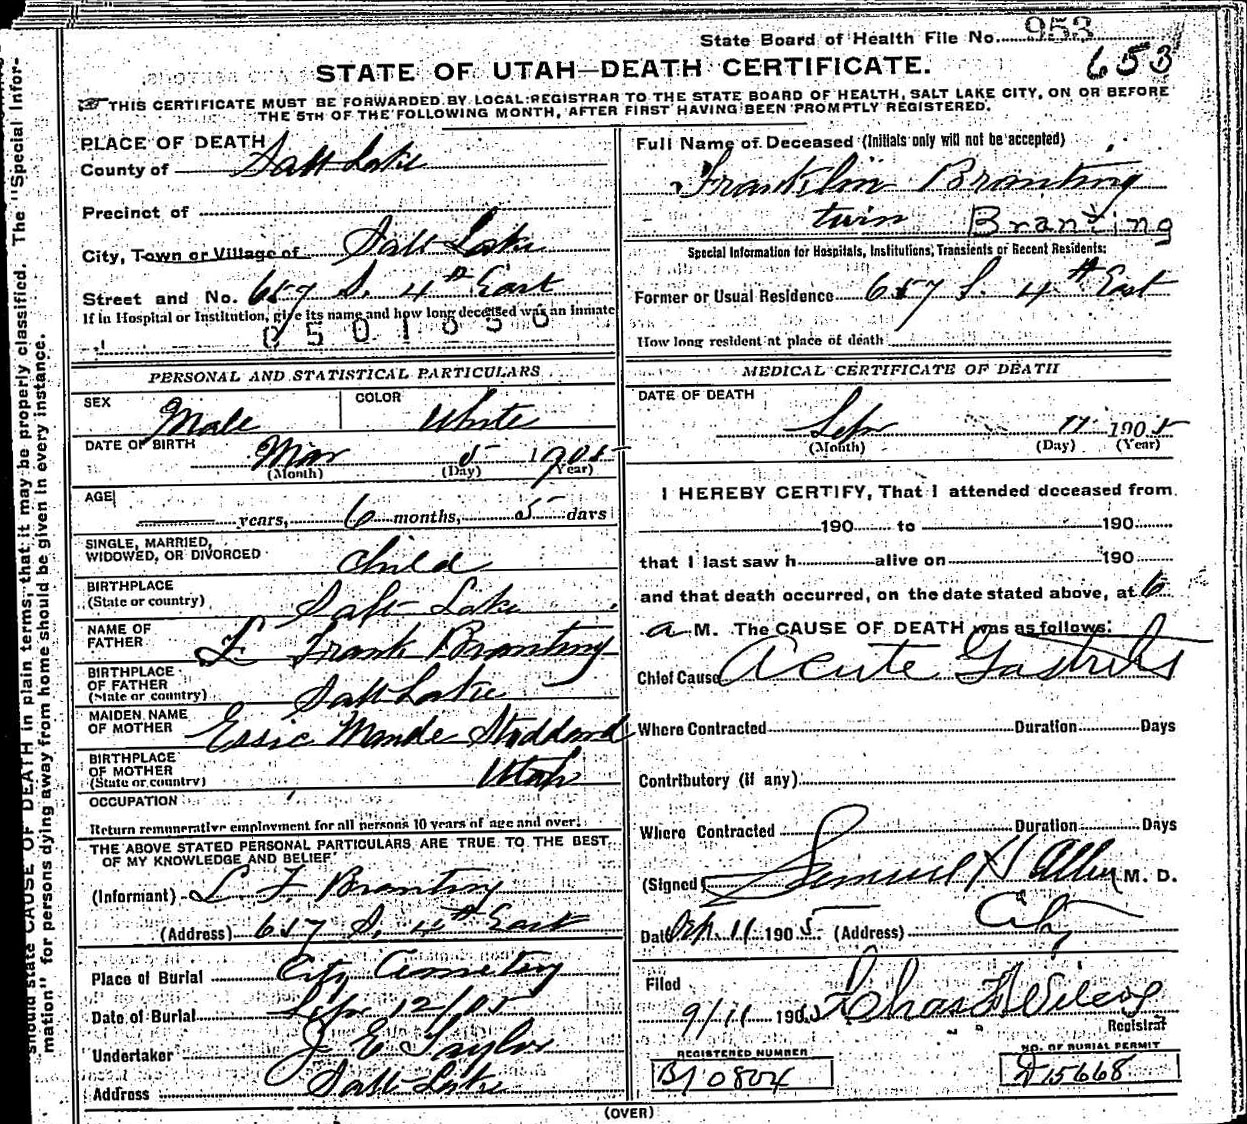 State Board of Health File No. 953
653
STATE OF UTAH—DEATH CERTIFICATE.
THIS CERTIFICATE MUST BE FORWARDED BY LOCAL REGISTRAR TO THE STATE BOARD OF HEALTH, SALT LAKE CITY, ON OR BEFORE
THE 5TH OF THE FOLLOWING MONTH, AFTER FIRST HAVING BEEN PROMPTLY REGISTERED.
should state CAUSE OF DEATH in plain terms, that it may be properly classified. The "Special Infor-
mation" for persons dying away from home should be given in every instance.
PLACE OF DEATH
County of Salt Lake
Precinct of
City, Town or Village of Salt Lake
Street and No. 657 S. 4th East
If in Hospital or Institution, give its name and how long deceased was an inmate
Full Name of Deceased (Initials only will not be accepted)
Franklin Branting
twin Branting
Special Information for Hospitals, Institutions, Transients or Recent Residents:
Former or Usual Residence 657 S. 4th East
How long resident at place of death
PERSONAL AND STATISTICAL PARTICULARS
SEX Male
COLOR White
DATE OF BIRTH
Mar 5 1905
(Month) (Day) (Year)
AGE
years, 6 months, 5 days
SINGLE, MARRIED,
WIDOWED, OR DIVORCED Child
BIRTHPLACE
(State or country) Salt Lake
NAME OF
FATHER L Frank Branting
BIRTHPLACE
OF FATHER
(State or country) Salt Lake
MAIDEN NAME
OF MOTHER Essie Maude Stoddard
BIRTHPLACE
OF MOTHER
(State or country) Utah
OCCUPATION
Return remunerative employment for all persons 10 years of age and over.
THE ABOVE STATED PERSONAL PARTICULARS ARE TRUE TO THE BEST
OF MY KNOWLEDGE AND BELIEF
(Informant) L F Branting
(Address) 657 S. 4th East
Place of Burial City Cemetery
Date of Burial Sep 12/05
Undertaker J E Taylor
Address Salt Lake
MEDICAL CERTIFICATE OF DEATH
DATE OF DEATH
Sep 11 1905
(Month) (Day) (Year)
I HEREBY CERTIFY, That I attended deceased from
190 to 190
that I last saw h alive on 190
and that death occurred, on the date stated above, at 6
a M. The CAUSE OF DEATH was as follows:
Chief Cause Acute Gastritis
Where Contracted Duration Days
Contributory (if any)
Where Contracted Duration Days
(Signed) Samuel H Allen M. D.
Date Sep. 11 1905 (Address) City
Filed
9/11 1905 Chas F Wilcox
Registrar
REGISTERED NUMBER
B10804
NO. OF BURIAL PERMIT
A15668
(OVER)